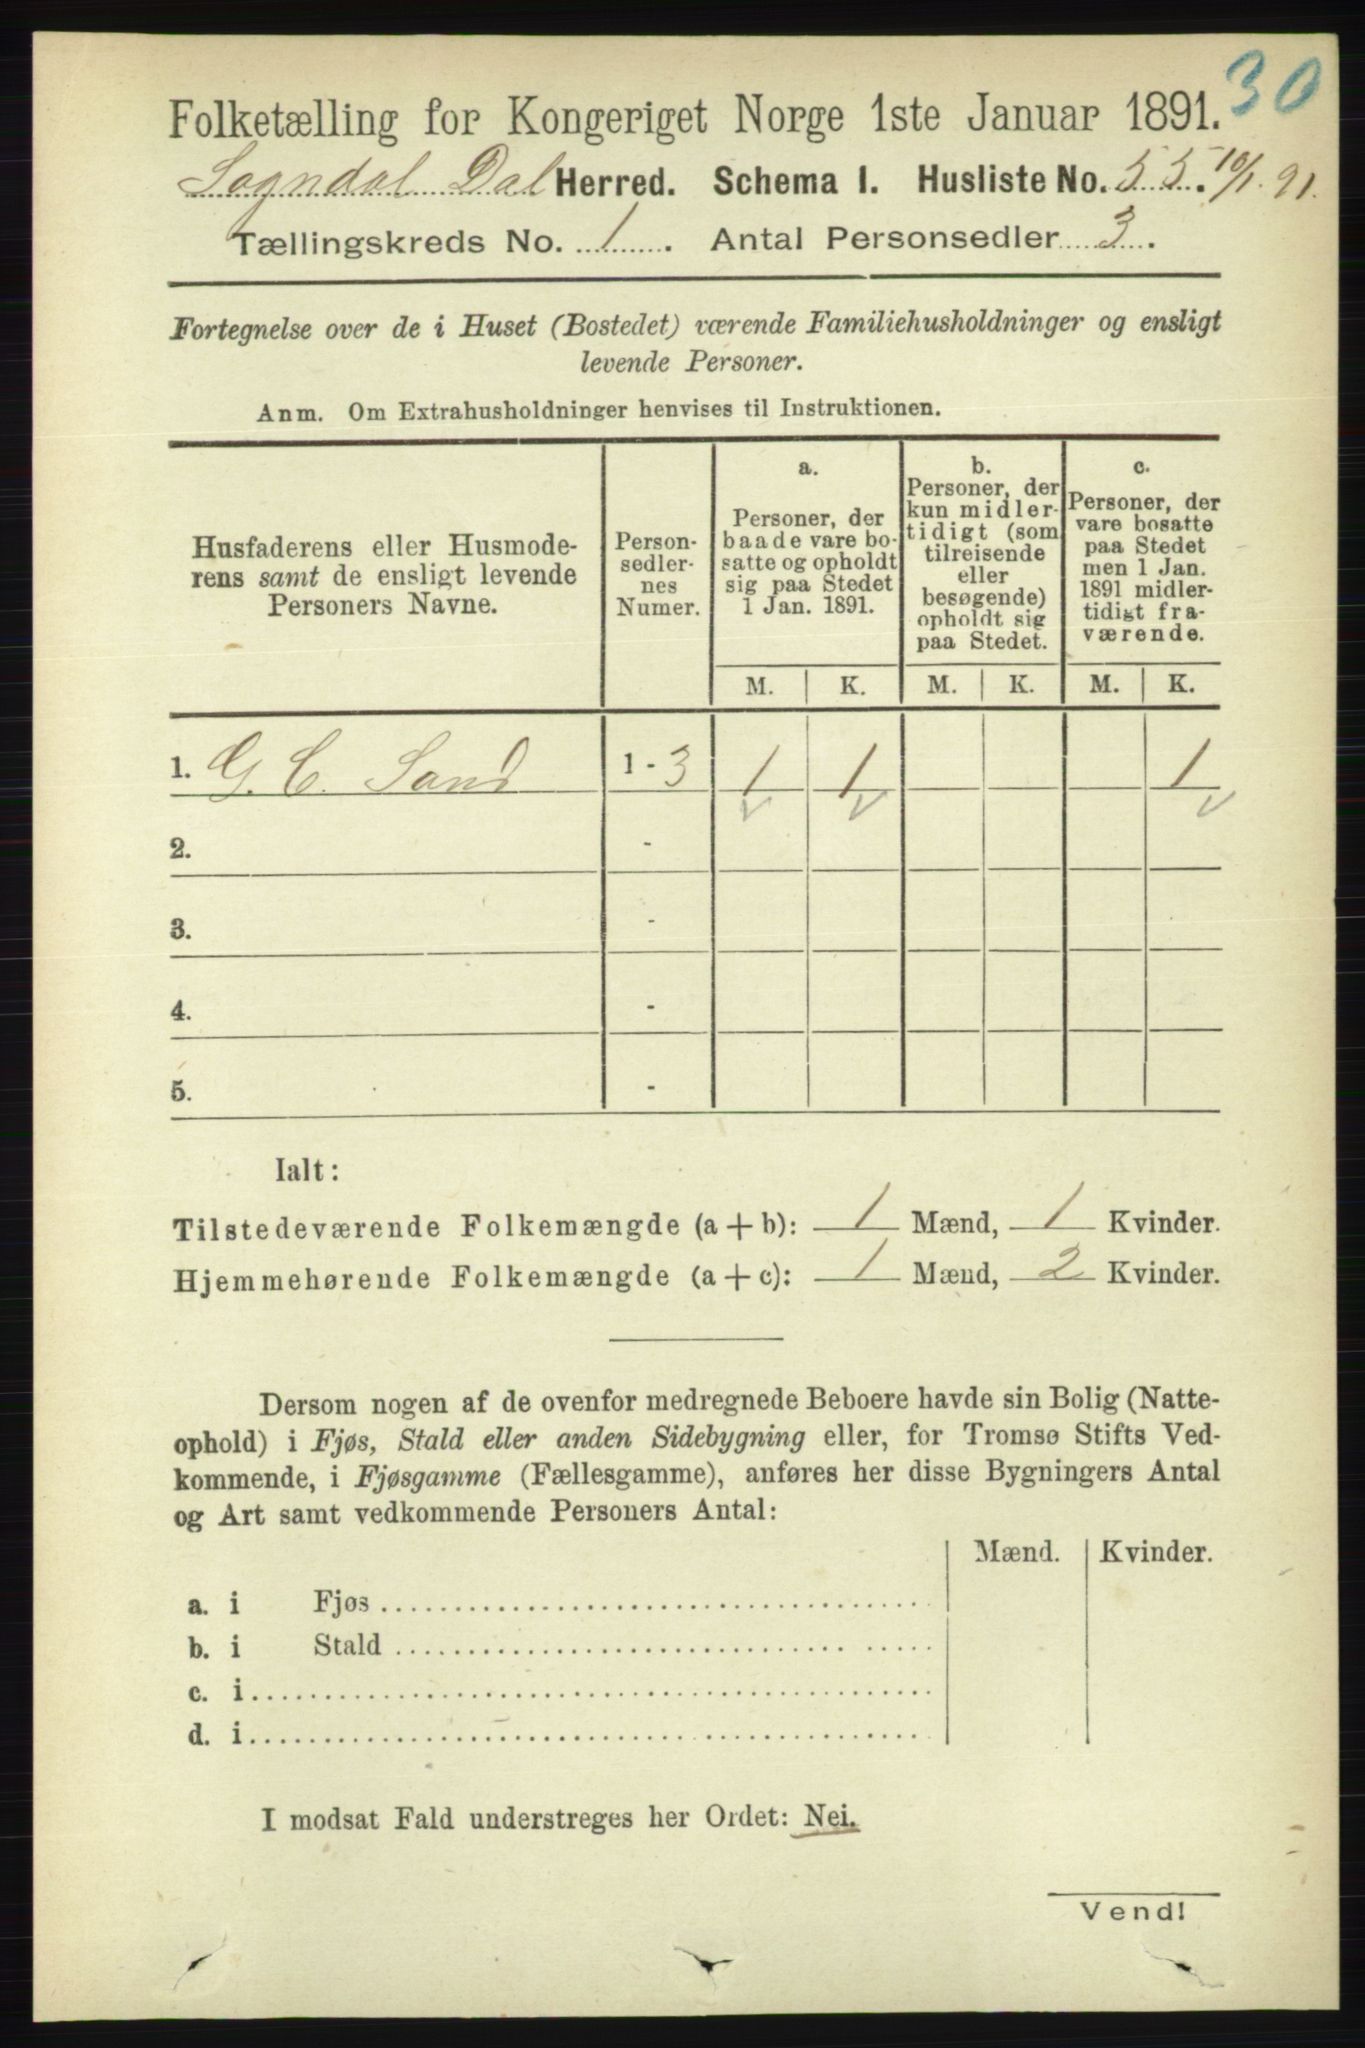 30
Folketælling for Kongeriget Norge 1ste Januar 1891.
Sogndal Dal Herred. Schema I. Husliste No. 55. 10/1. 91.
Tællingskreds No. 1. Antal Personsedler 3.
Fortegnelse over de i Huset (Bostedet) værende Familiehusholdninger og ensligt
levende Personer.
Anm. Om Extrahusholdninger henvises til Instruktionen.
Husfaderens eller Husmode-
rens samt de ensligt levende
Personers Navne.
Person-
sedler-
nes
Numer.
a.
Personer, der
baade vare bo-
satte og opholdt
sig paa Stedet
1 Jan. 1891.
b.
Personer, der
kun midler-
tidigt (som
tilreisende
eller
besøgende)
opholdt sig
paa Stedet.
c.
Personer, der
vare bosatte
paa Stedet
men 1 Jan.
1891 midler-
tidigt fra-
værende.
M. K. M. K. M. K.
1. G. C. Sand 1 - 3 1 1 1
2. -
3. -
4. -
5. -
Ialt:
Tilstedeværende Folkemængde (a + b): 1 Mænd, 1 Kvinder.
Hjemmehørende Folkemængde (a + c): 1 Mænd, 2 Kvinder.
Dersom nogen af de ovenfor medregnede Beboere havde sin Bolig (Natte-
ophold) i Fjøs, Stald eller anden Sidebygning eller, for Tromsø Stifts Ved-
kommende, i Fjøsgamme (Fællesgamme), anføres her disse Bygningers Antal
og Art samt vedkommende Personers Antal:
Mænd. Kvinder.
a. i Fjøs
b. i Stald
c. i
d. i
I modsat Fald understreges her Ordet: Nei.
Vend!